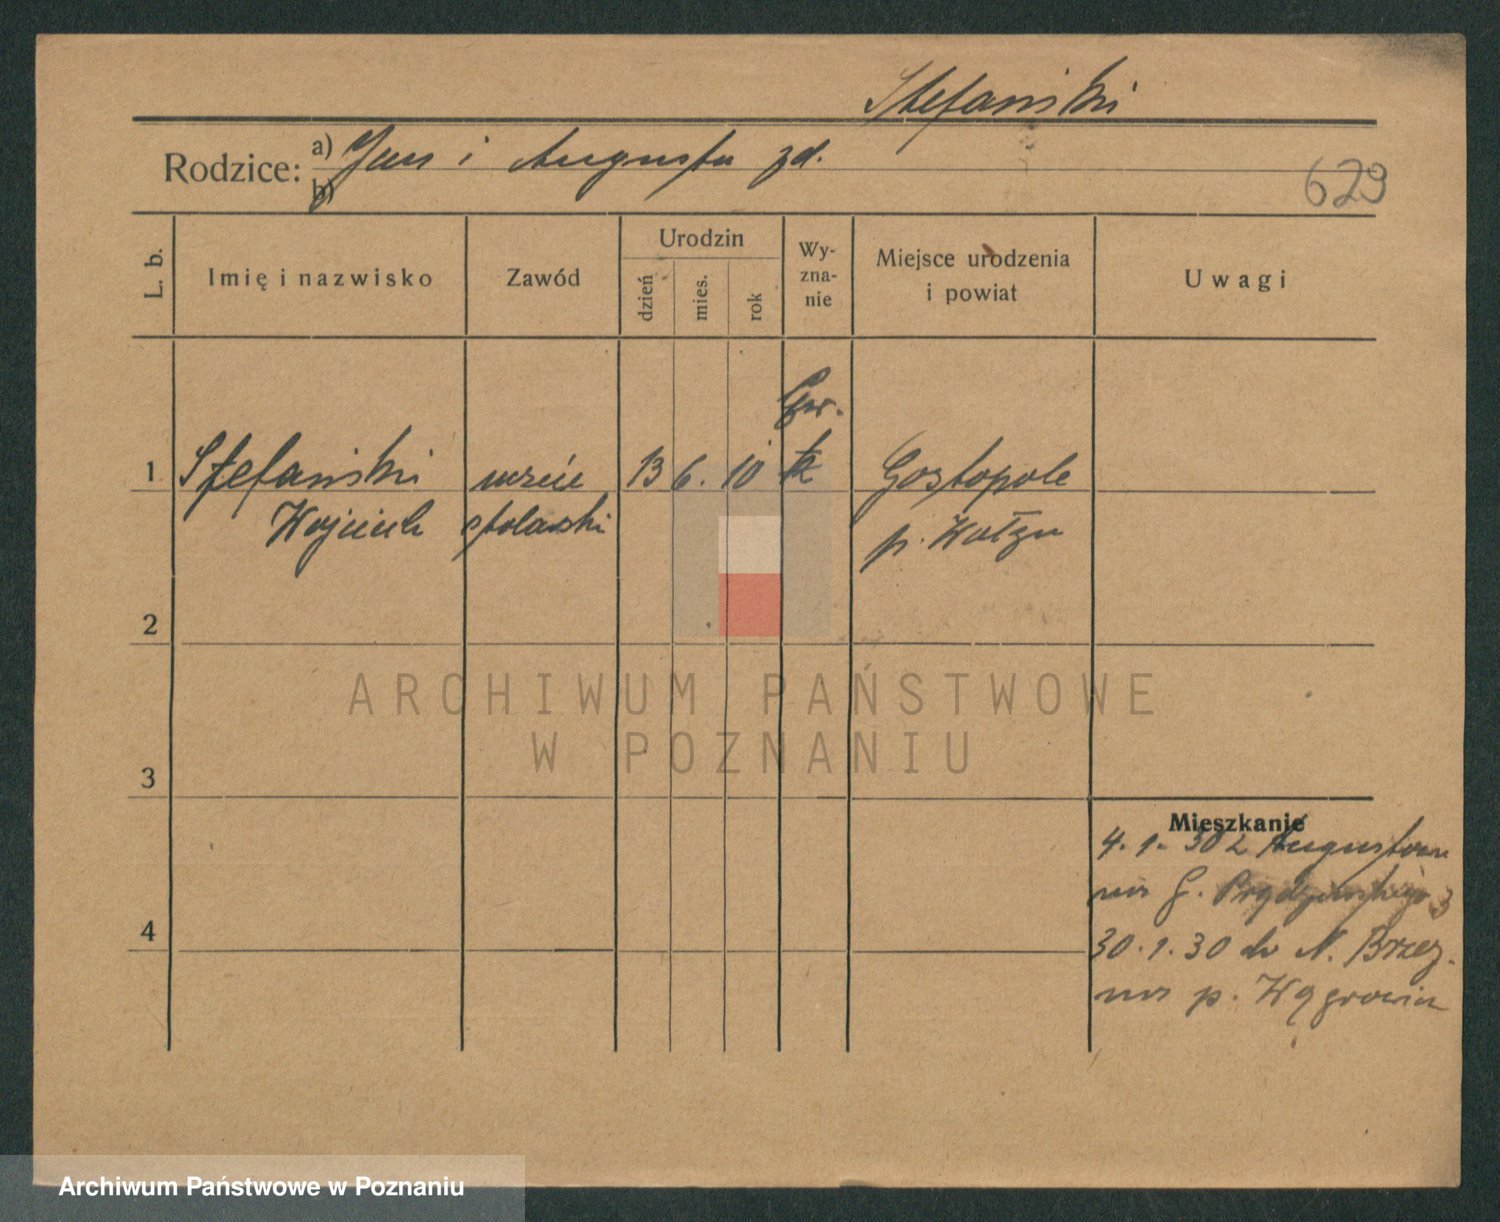 Stefański
Rodzice: a) Jan i Augusta zd.
b)
629
L. b.
Imię i nazwisko
Zawód
Urodzin
dzień
mies.
rok
Wy-
zna-
nie
Miejsce urodzenia
i powiat
Uwagi
1 Stefański uczeń 13 6. 10 k Gostopole
Wojciech stolarski p.
2
3
4
Mieszkanie
4. 1. 30 z
G. Prądzyńskiego 3
30. 1. 30 do N. Brzez-
no p. Wągrowiec
ARCHIWUM PAŃSTWOWE
W POZNANIU
Archiwum Państwowe w Poznaniu